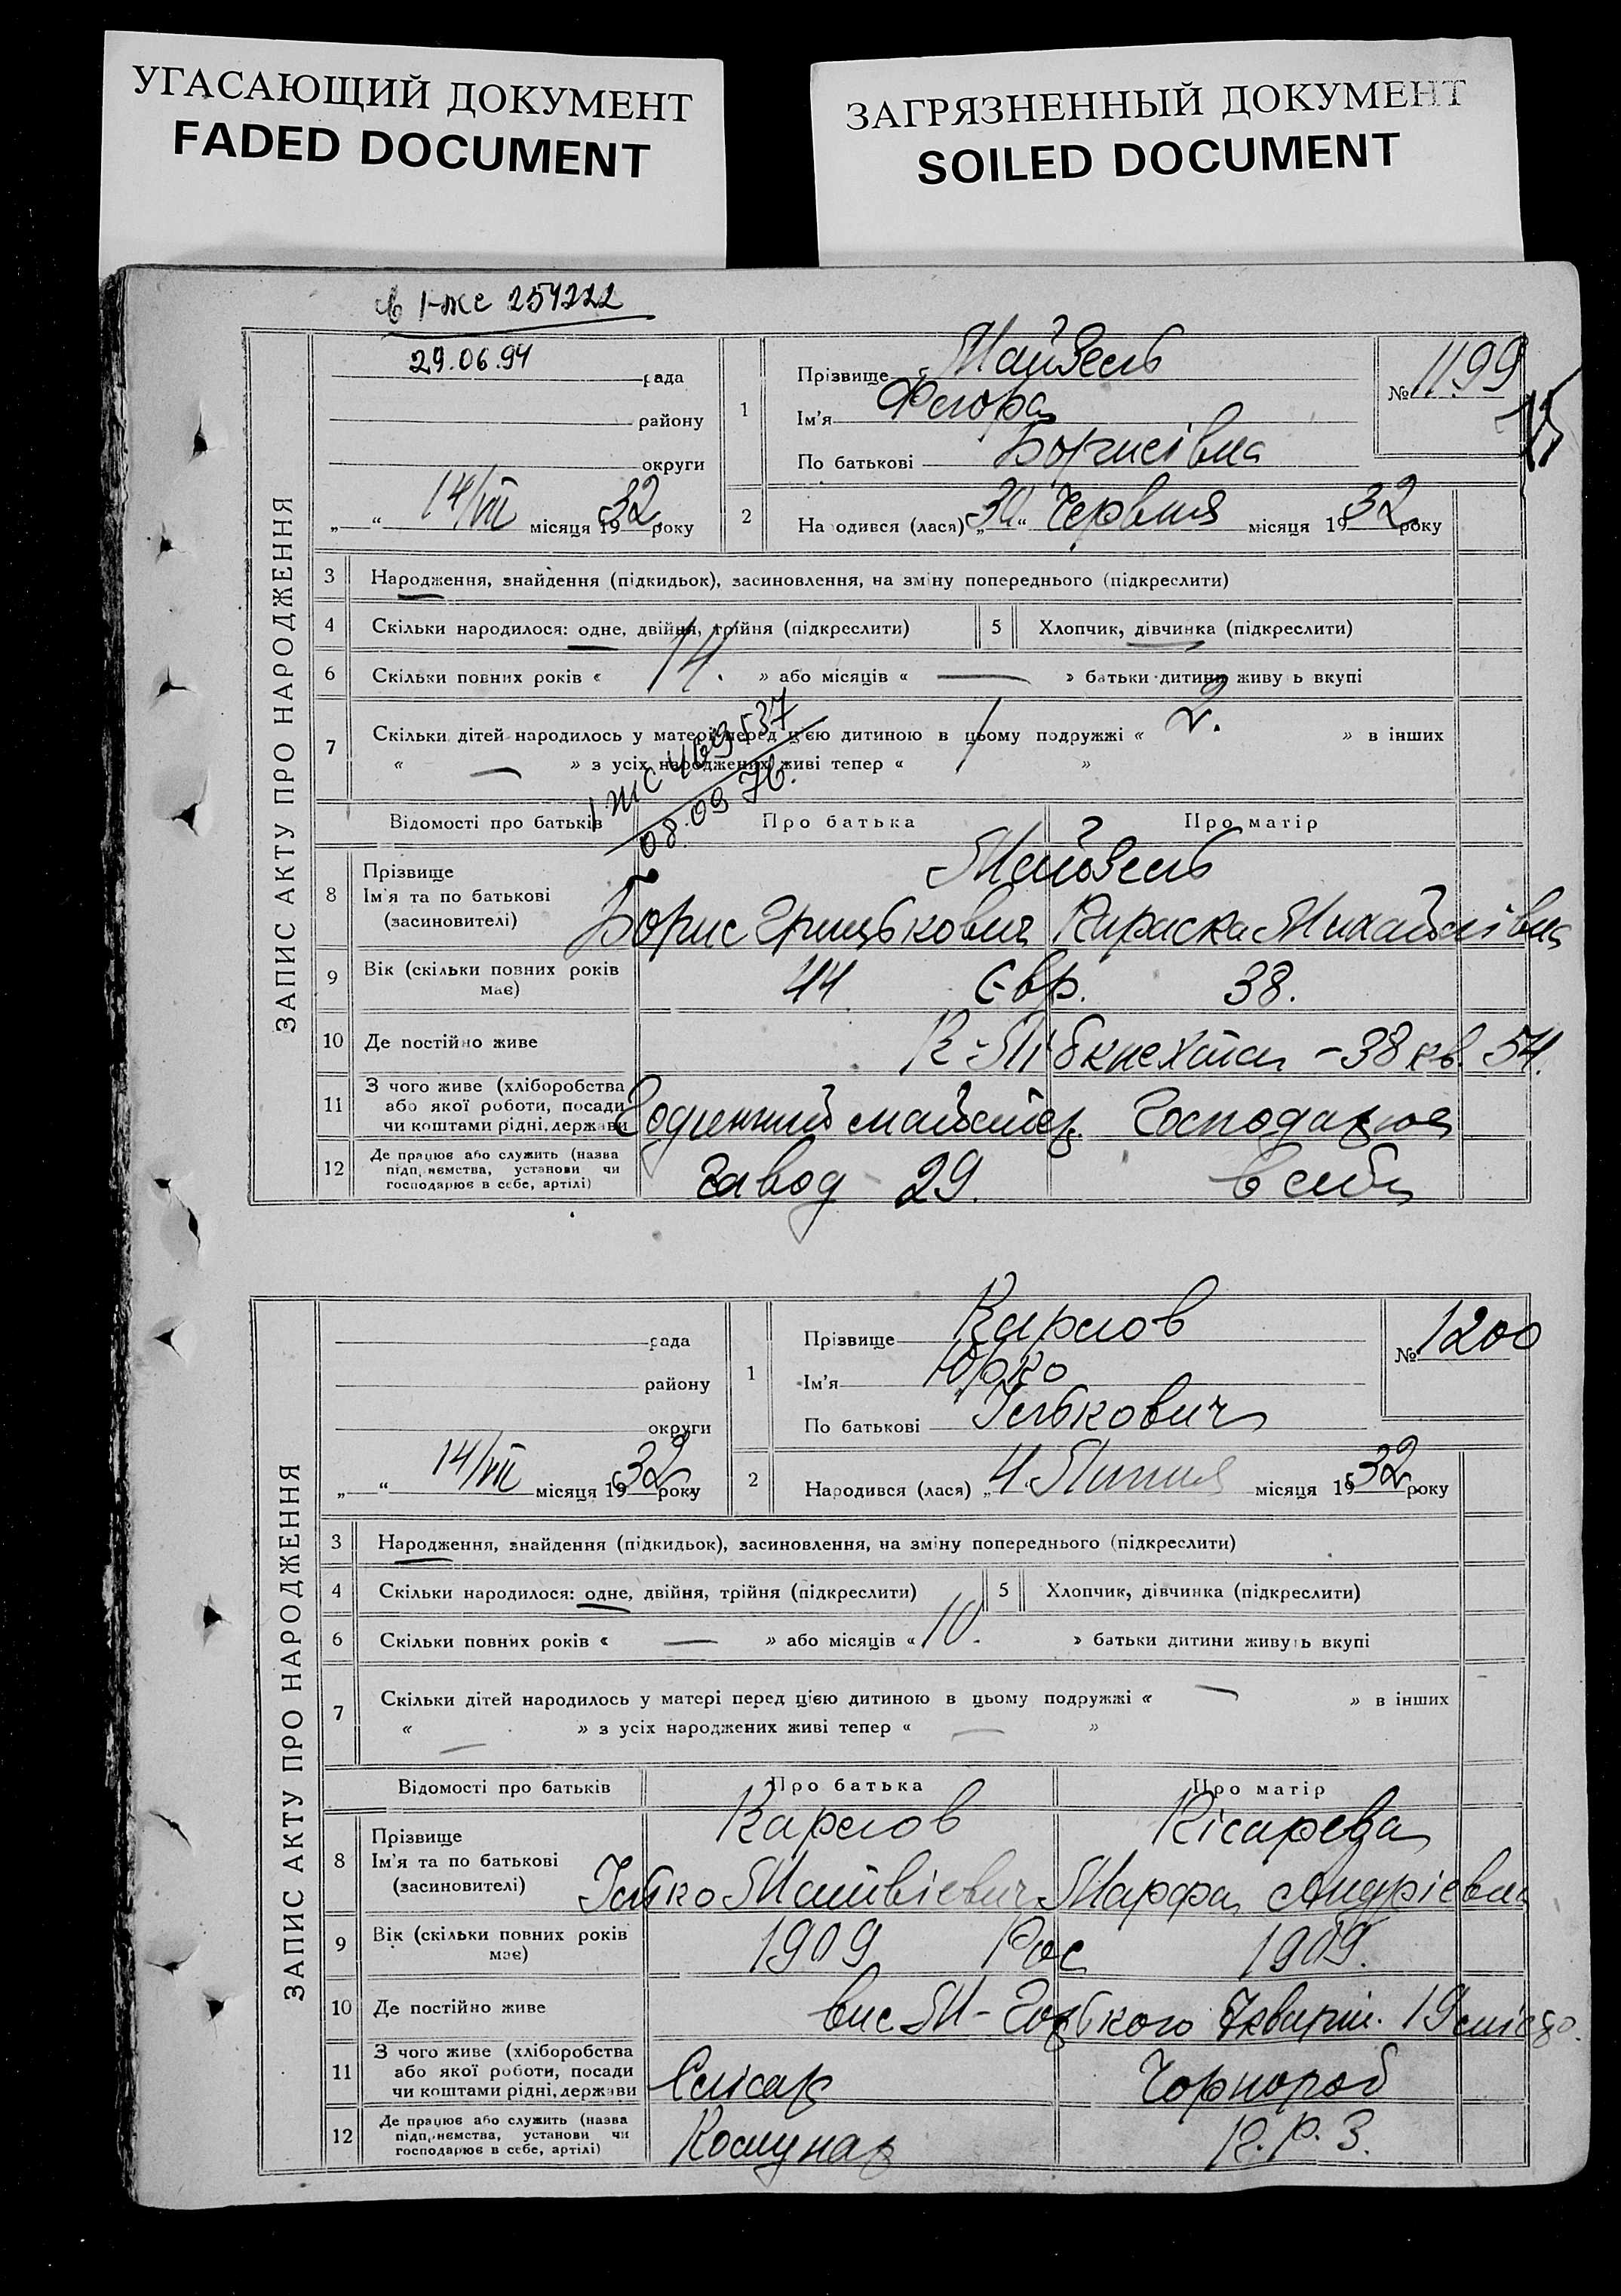 УГАСАЮЩИЙ ДОКУМЕНТ
FADED DOCUMENT
ЗАГРЯЗНЕННЫЙ ДОКУМЕНТ
SOILED DOCUMENT
І-жс 254222
29.06.94
ЗАПИС АКТУ ПРО НАРОДЖЕННЯ
рада
району
округи
„ “ 14/VII місяця 1932 року
1
Прізвище Майзель
Ім'я Флора
По батькові Борисівна
№ 1199
2
Народився (лася) „30“ Червня місяця 1932 року
3 Народження, знайдення (підкидьок), засиновлення, на зміну попереднього (підкреслити)
4 Скільки народилося: одне, двійня, трійня (підкреслити)
5 Хлопчик, дівчинка (підкреслити)
6 Скільки повних років « 14. » або місяців « — » батьки дитини живуть вкупі
7 Скільки дітей народилось у матері перед цією дитиною в цьому подружжі « 2. » в інших
« — » з усіх народжених живі тепер « 1 »
1 жс 469537
08.09 76.
Відомості про батьків Про батька Про матір
8 Прізвище
Ім'я та по батькові
(засиновителі)
Майзель
Борис Грицькович Кираска Михайлівна
9 Вік (скільки повних років має) 44 Євр. 38.
10 Де постійно живе К-Лібкнехта - 38 кв. 54.
11 З чого живе (хліборобства
або якої роботи, посади
чи коштами рідні, держави
Годинний майстер. Господарює
12 Де працює або служить (назва
підприємства, установи чи
господарює в себе, артілі)
Завод 29. в себе
ЗАПИС АКТУ ПРО НАРОДЖЕННЯ
рада
району
округи
„ “ 14/VII місяця 1932 року
1
Прізвище Карпов
Ім'я Юрко
По батькові Ількович
№ 1200
2
Народився (лася) „4. Липня місяця 1932 року
3 Народження, знайдення (підкидьок), засиновлення, на зміну попереднього (підкреслити)
4 Скільки народилося: одне, двійня, трійня (підкреслити)
5 Хлопчик, дівчинка (підкреслити)
6 Скільки повних років « — » або місяців « 10. » батьки дитини живуть вкупі
7 Скільки дітей народилось у матері перед цією дитиною в цьому подружжі « — » в інших
« — » з усіх народжених живі тепер « — »
Відомості про батьків Про батька Про матір
8 Прізвище
Ім'я та по батькові
(засиновителі)
Карпов Кісарева
Ілько Матвієвич Марфа Андрієвна
9 Вік (скільки повних років має) 1909 Рос 1909.
10 Де постійно живе вис М-Горького
11 З чого живе (хліборобства
або якої роботи, посади
чи коштами рідні, держави
Слісар Чорнороб
12 Де працює або служить (назва
підприємства, установи чи
господарює в себе, артілі)
Комунар К.Р.З.